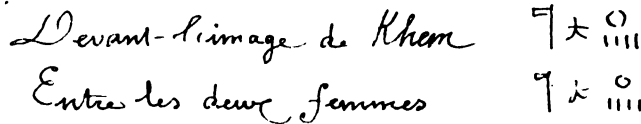 Devant-l'image de Khem
Entre les deux femmes